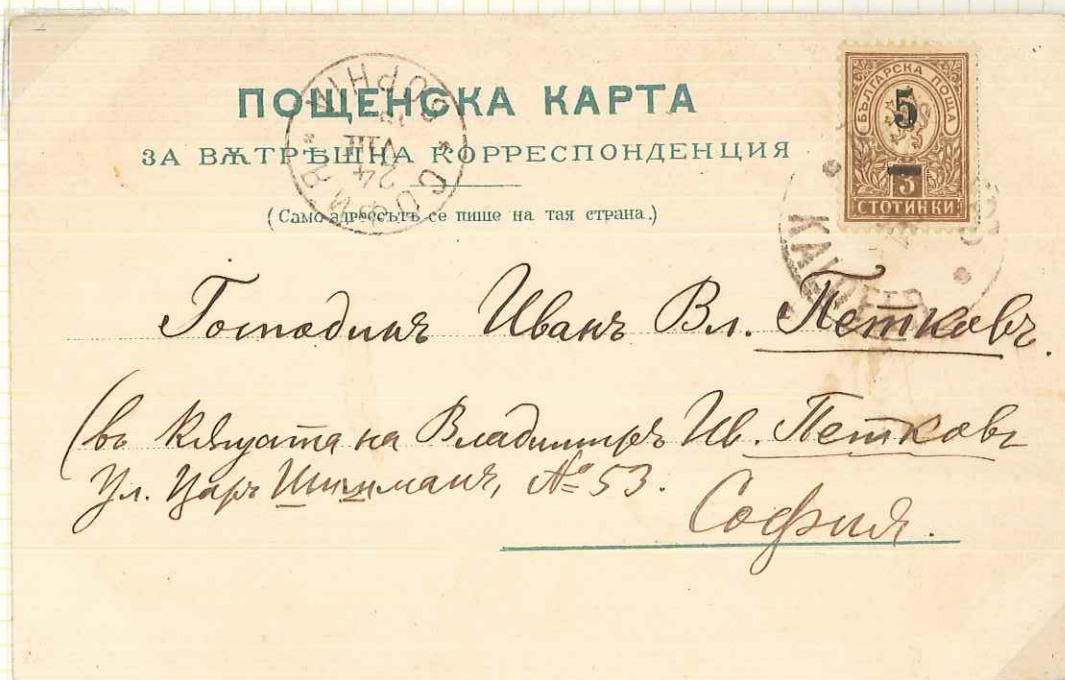 ПОЩЕНСКА КАРТА
ЗА ВѪТРѢШНА КОРРЕСПОНДЕНЦИЯ
(Само адрессътъ се пише на тая страна.)
БЪЛГАРСКА ПОЩА
5
3
СТОТИНКИ
СОФИЯ
24
VIII
Господинъ Иванъ Вл. Петковъ.
(въ кѫщата на Владимиръ Ив. Петковъ
Ул. Царь Шишманъ, № 53.
София.